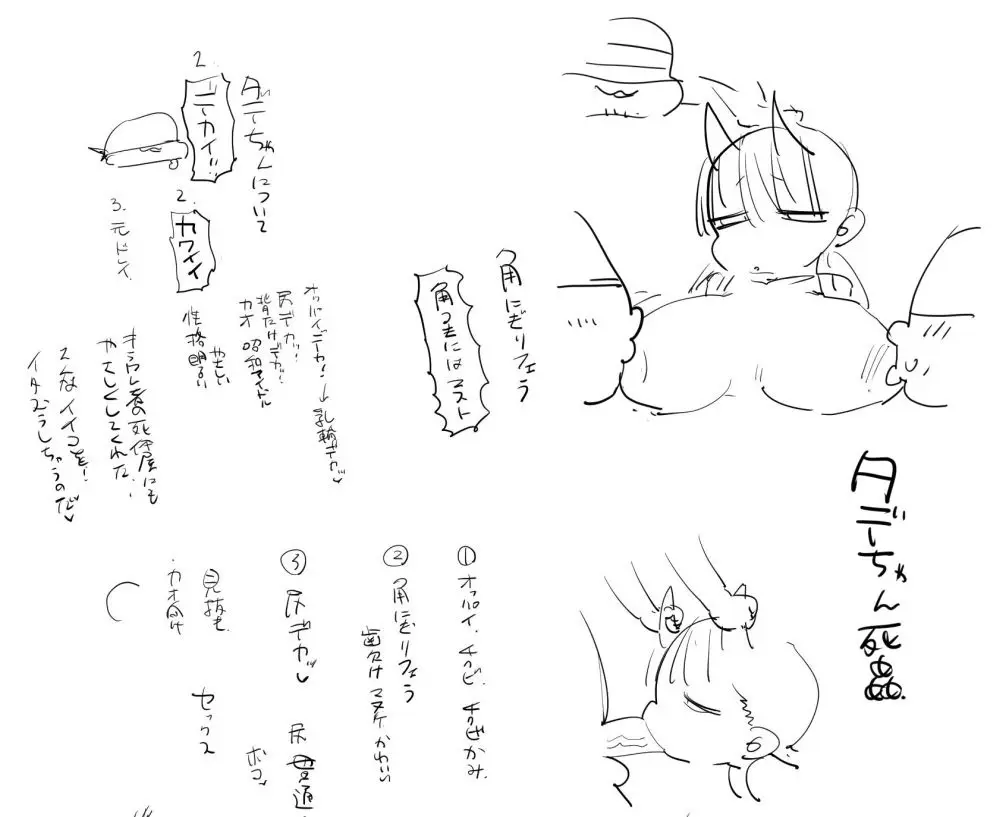 ダデーちゃんについて
2.
デカイ!!
2.
カワイイ
3. 元ドレイ
オッパイデカッ!→乳輪デカッ♡
尻デカッ!
背たけデカッ!
カオ 昭和アイドル
やさしい
性格明るい
キラワレ者の死体屋にも
やさしくしてくれた。
そんなイイコを!
イタズラしちゃうのだ♡
角にぎりフェラ
角つきにはマスト
ダデーちゃん死姦
① オッパイ、チクビ、
② 角にぎりフェラ
歯欠けマヌケかわいい
③ 尻デカッ♡
ボコ♡
セックス